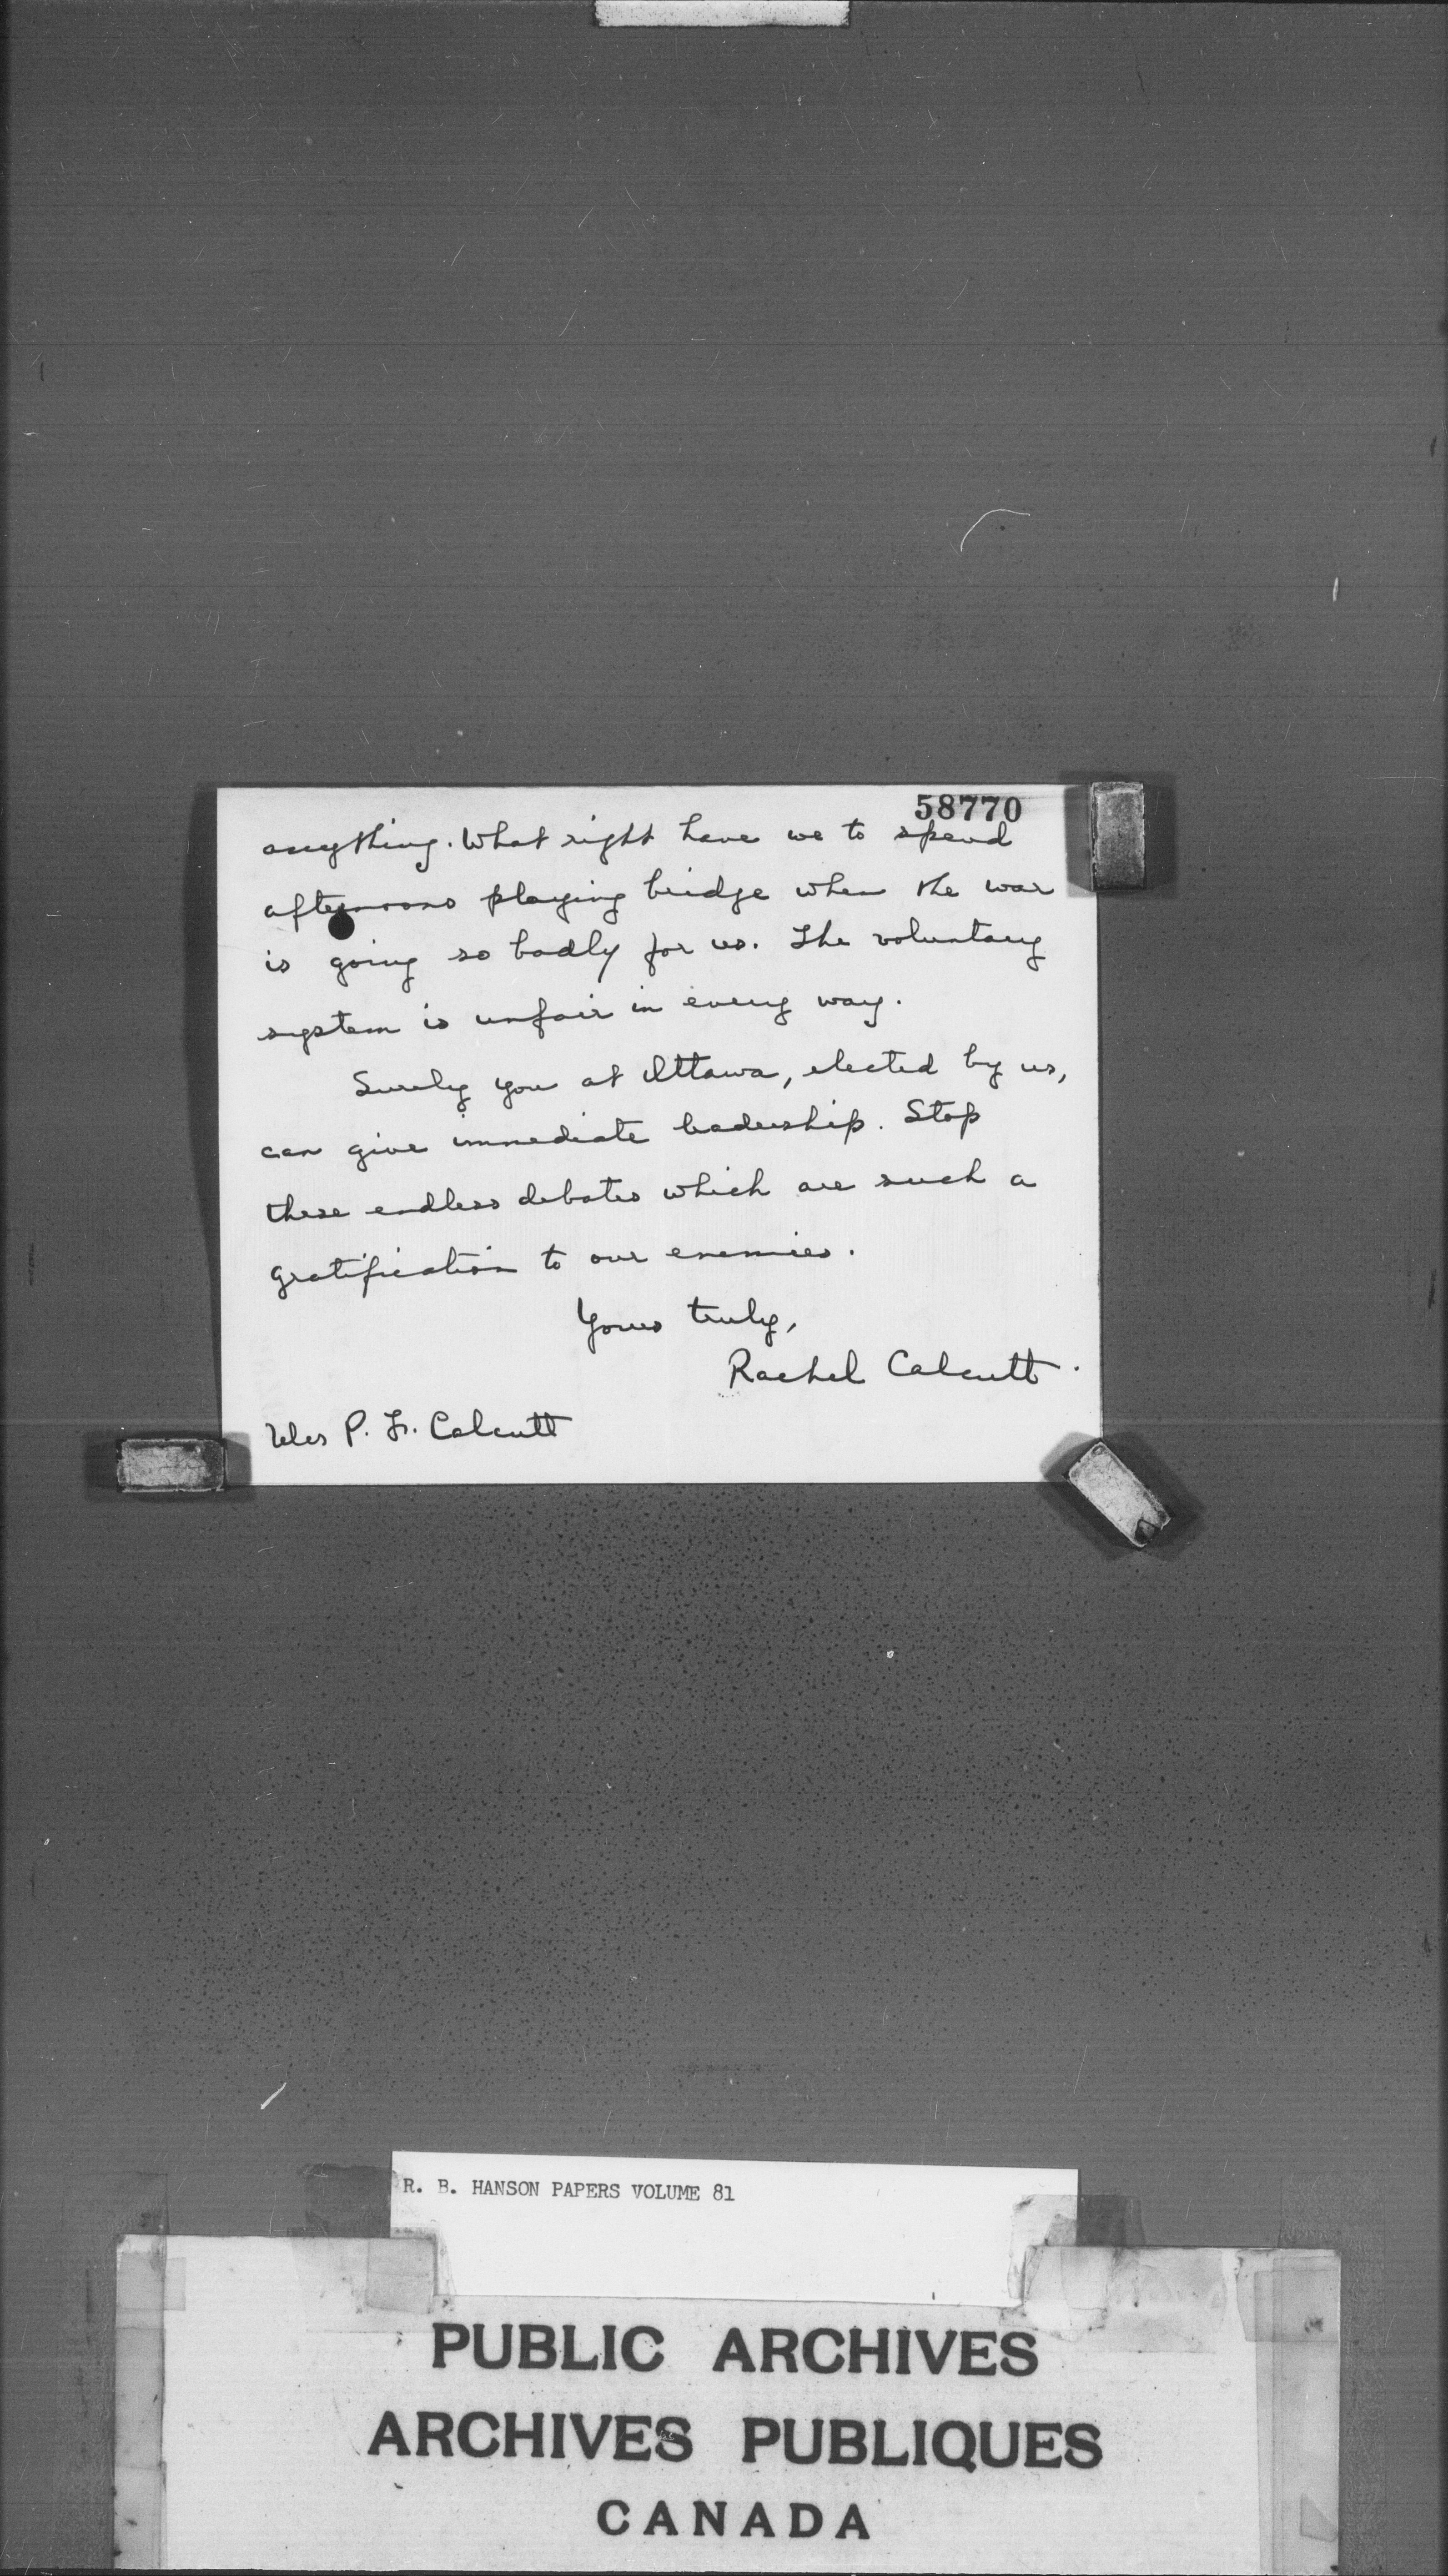 58770
anything. What right have we to spend
afternoons playing bridge when the war
is going so badly for us. The voluntary
system is unfair in every way.
Surely you at Ottawa, elected by us,
can give immediate leadership. Stop
these endless debates which are such a
gratification to our enemies.
Yours truly,
Rachel Calcutt.
Mrs P. F. Calcutt
R. B. HANSON PAPERS VOLUME 81
PUBLIC ARCHIVES
ARCHIVES PUBLIQUES
CANADA